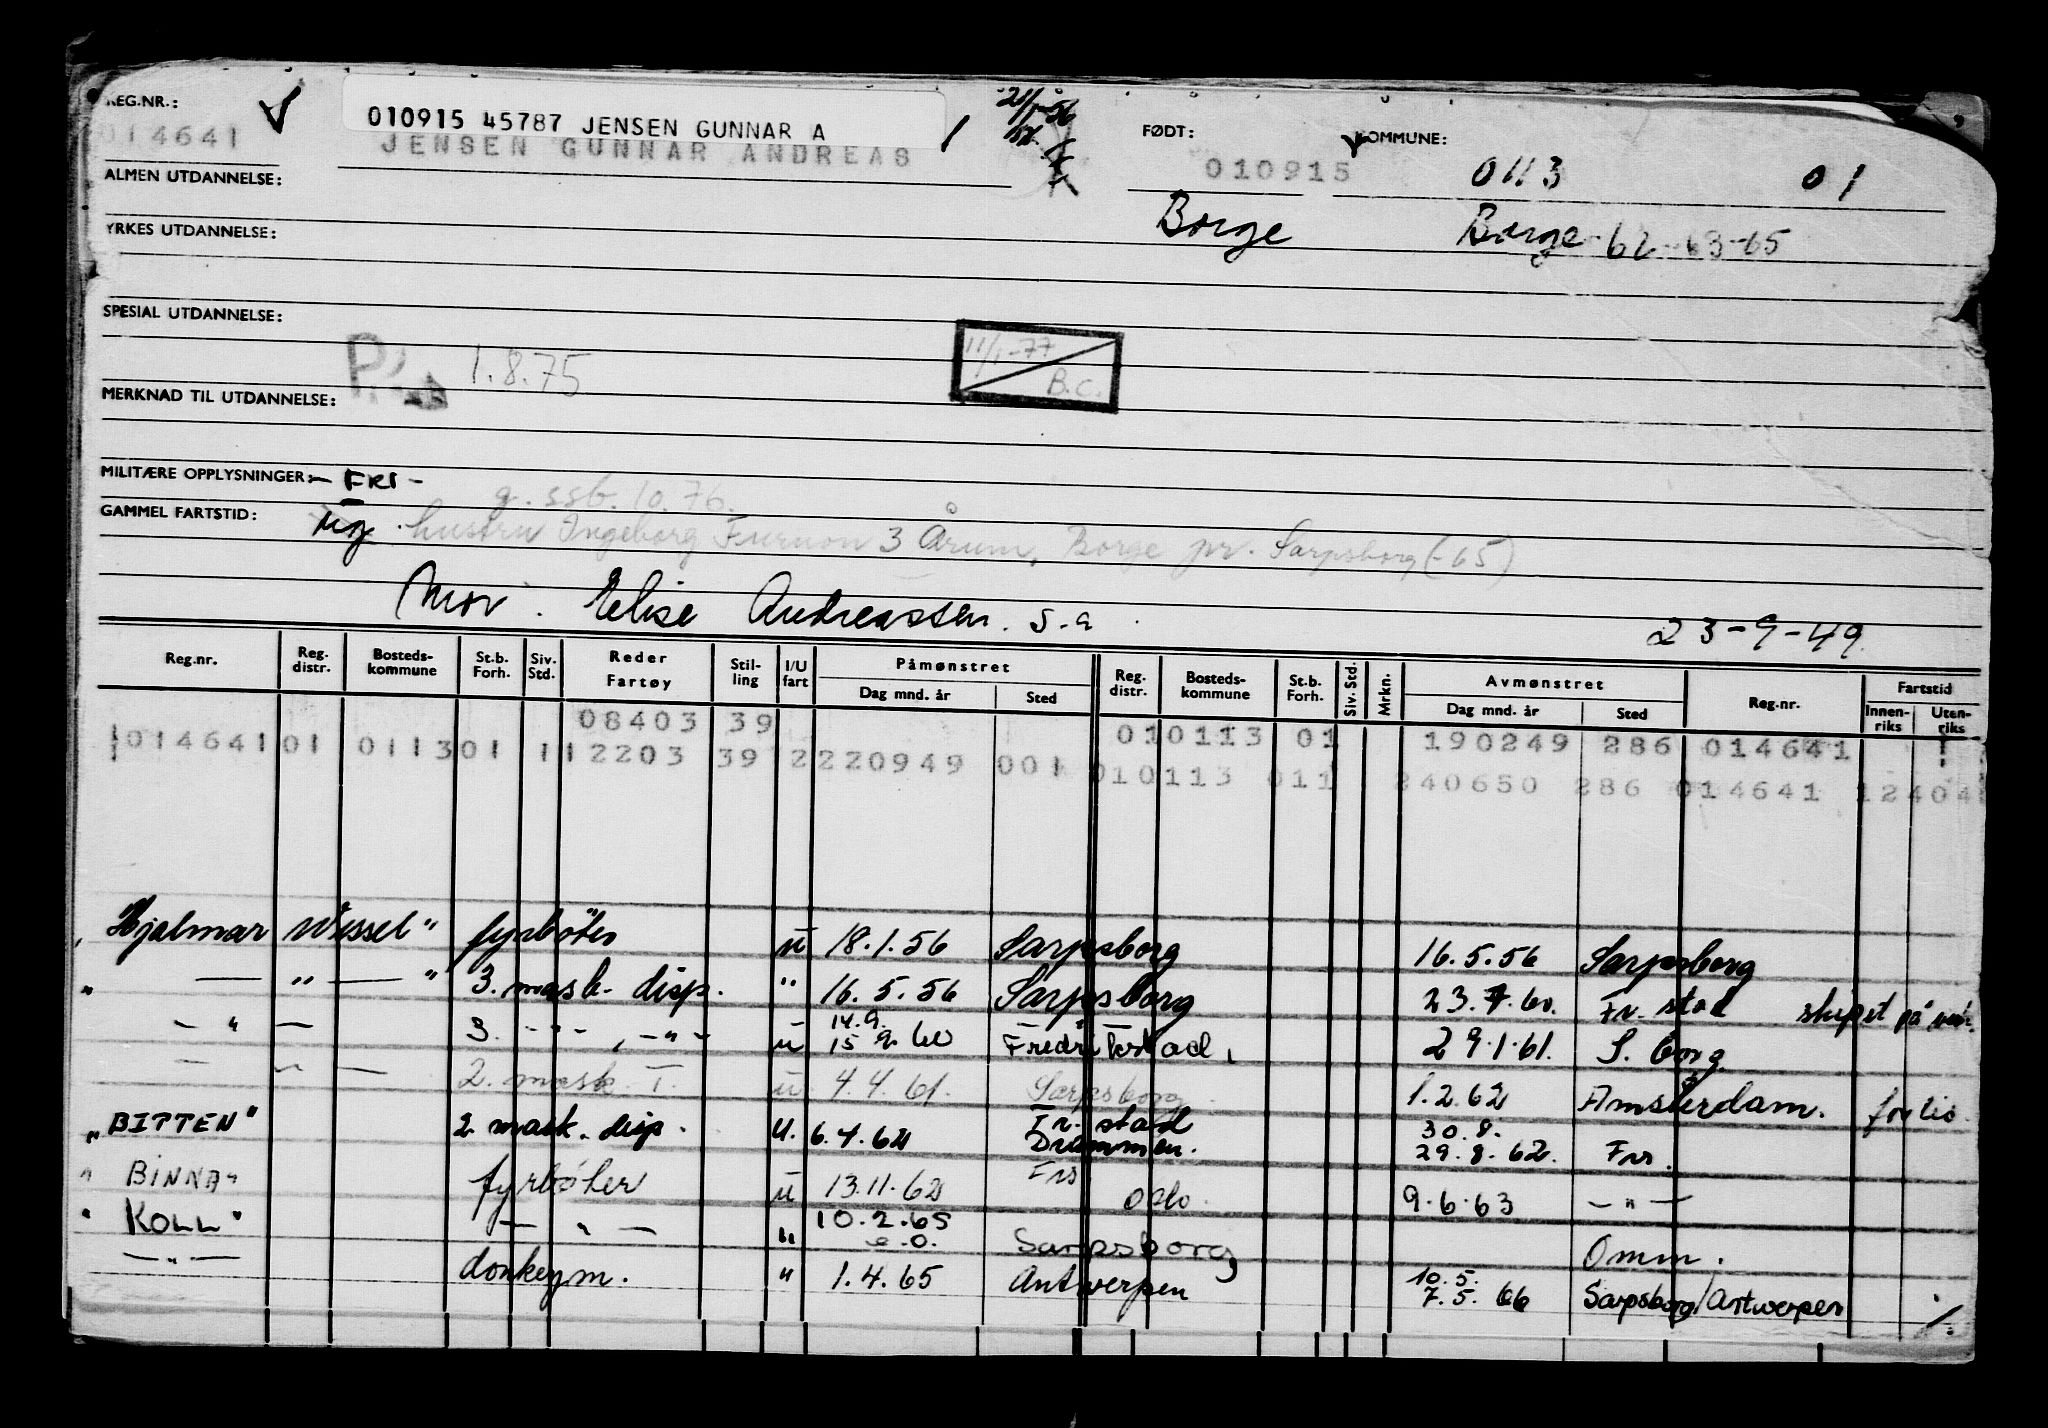 REG.NR.:
014641
010915 45787 JENSEN GUNNAR A
JENSEN GUNNAR ANDREAS
1
FØDT:
010915
KOMMUNE:
0113 01
ALMEN UTDANNELSE:
Borge Borge-62-63-65
YRKES UTDANNELSE:
SPESIAL UTDANNELSE:
1.8.75
11/1-77
B.C.
MERKNAD TIL UTDANNELSE:
MILITÆRE OPPLYSNINGER: - FRI -
g. ssb. 10.76.
GAMMEL FARTSTID:
hustru Ingeborg 3 Årum, Borge pr. Sarpsborg (-65)
Mor. Elise Andreassen. s.a.
23-9-49.
Reg.nr. Reg. distr. Bosteds- kommune St.b. Forh. Siv. Std. Reder Fartøy Stil- ling I/U fart Påmønstret Dag mnd. år Sted Reg. distr. Bosteds- kommune St.b. Forh. Siv. Std. Mrkn. Avmønstret Dag mnd. år Sted Reg.nr. Fartstid Innen- riks Uten- riks
08403 39 010113 01 190249 286 014641 1
1014641 01 0113 01 1 112203 39 2 220949 001 010113 011 240650 286 014641 12404
"Hjalmar Wessel" fyrbøter u 18.1.56 Sarpsborg 16.5.56 Sarpsborg
" — " — " 3. mask. disp. " 16.5.56 Sarpsborg 23.7.60. Fr. stad skipet på
— " — 3. -"- , -"- u 14.9. 15.9.60 Fredrikstad, 29.1.61. S. borg
— " — 2. mask. T. u 4.4.61. Sarpsborg 1.2.62 Amsterdam. forlis.
"BITTEN" 2 mask. disp. u. 6.4.62 Fr. stad Drammen. 30.8. 29.8.62. Frs.
" BINNA" fyrbøter u 13.11.62 Frs Oslo. 9.6.63 — " —
" KOLL" — " — " 10.2.65 e.o. Sarpsborg Omm.
— " — donkeym. " 1.4.65 Antwerpen 10.5. 7.5.66 Sarpsborg/Antwerpen